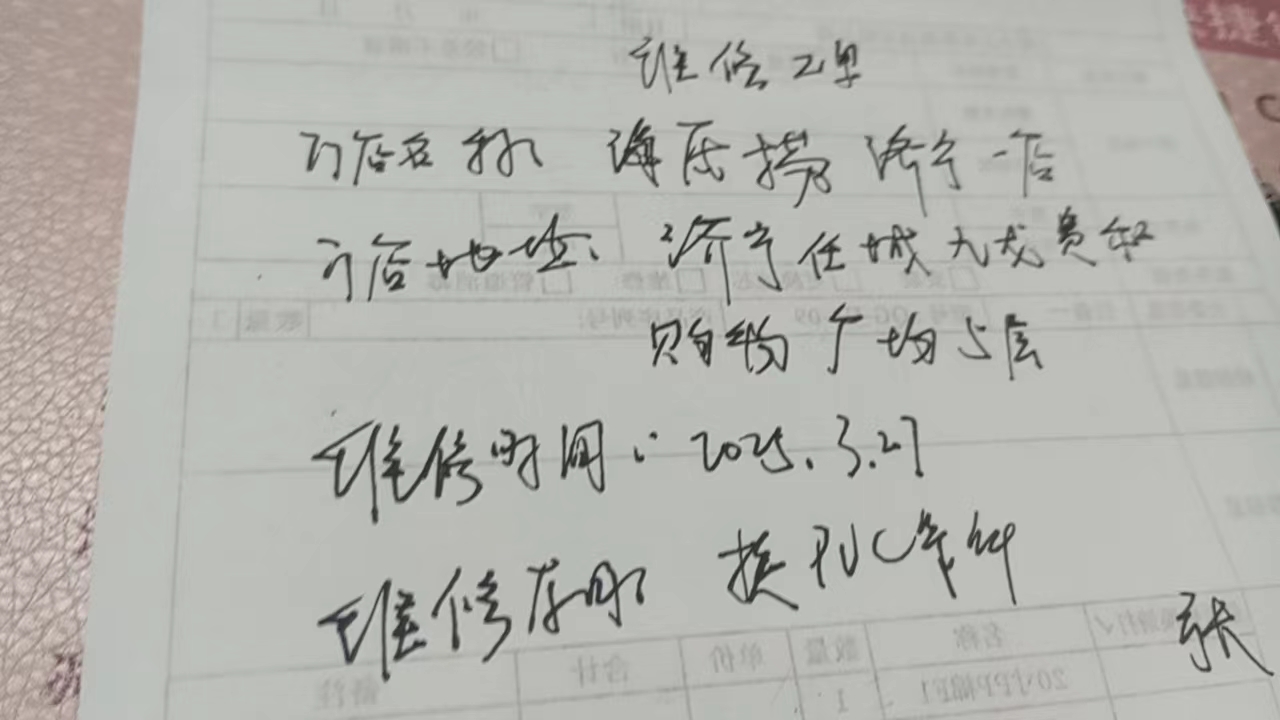 维修工单
门店名称 海底捞济宁一店
门店地址: 济宁任城九龙贵和
购物广场5层
维修时间: 2025.3.27
维修 换PVC
张